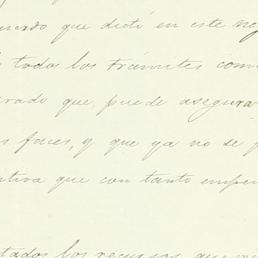 uerdo que dictó en este neg
s todos los trámites conv
rado que, puede asegura
s faces, y que ya no se p
ativa que con tanto empeñ
tados los recursos, que